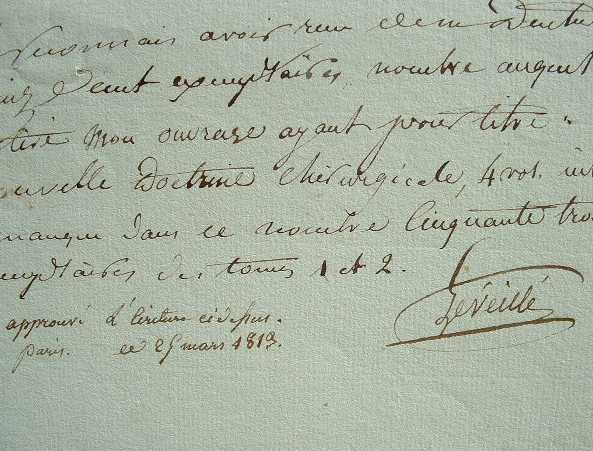 reconnais avoir reçu de m Docteu
cinq Cent exemplaires, nombre auquel
tiré mon ouvrage ayant pour titre:
ouvelle Doctrine Chirurgicale, 4 vol. in
manque dans ce nombre Cinquante troi
emplaires des tomes 1 et 2.
approuvé L'écriture ci dessus.
paris. ce 25 mars 1813.
Léveillé